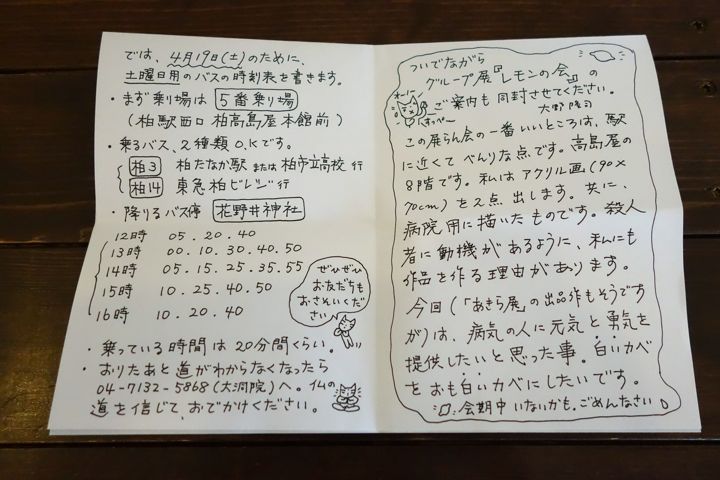 では、4月19日(土)のために、
土曜日用のバスの時刻表を書きます。
・まず乗り場は 5番乗り場
(柏駅西口 柏高島屋本館前)
・乗るバス、2種類O.Kです。
柏3 柏たなか駅 または 柏市立高校 行
柏14 東急柏ビレジ 行
・降りるバス停 花野井神社
12時 05.20.40
13時 00.10.30.40.50
14時 05.15.25.35.55
15時 10.25.40.50
16時 10.20.40
ぜひぜひ
お友だちも
おさそいくだ
さい
・乗っている時間は20分間くらい。
・おりたあと道がわからなくなったら
04-7132-5868(大洞院)へ。仏の
道を信じて、おでかけください。
ついでながら
グループ展『レモンの会』の
ご案内も同封させてください。
大野隆司
この展らん会の一番いいところは、駅
に近くてべんりな点です。高島屋の
8階です。私はアクリル画(90×
90cm)を2点出します。共に、
病院用に描いたものです。殺人
者に動機があるように、私にも
作品を作る理由があります。
今回(「あきら展」の出品作もそうです
が)は、病気の人に元気と勇気を
提供したいと思った事。白いカベ
をおも白いカベにしたいです。
会期中いないかも。ごめんなさい